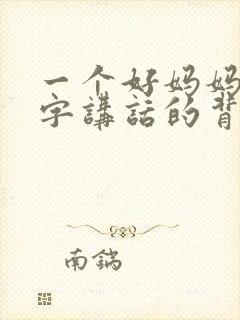 一个好妈妈
字講話的背
南鍋